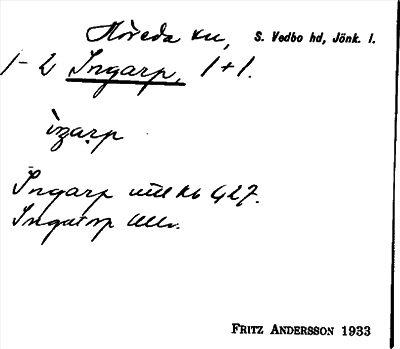 Höreda sn, S. Vedbo hd, Jönk. l.
1-2 Ingarp, 1+1.
Ingarp kb 427.
Ingatorp
FRITZ ANDERSSON 1933